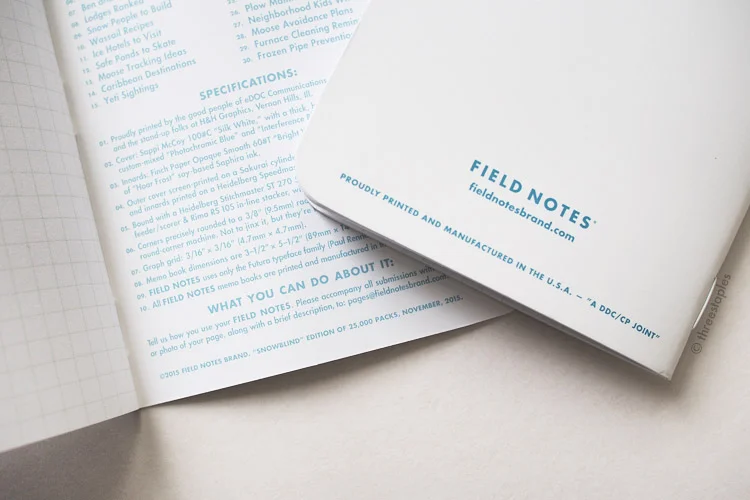 Snow People to Build
10. Wassail Recipes
11. Ice Hotels to Visit
12. Safe Ponds to Skate
13. Moose Tracking Ideas
14. Caribbean Destinations
15. Yeti Sightings
26. Plow
27. Neighborhood Kids
28. Moose Avoidance Plans
29. Furnace Cleaning Remin
30. Frozen Pipe Preventio
SPECIFICATIONS:
01. Proudly printed by the good people of eDOC Communications
and the stand-up folks at H&H Graphics, Vernon Hills, Ill.
02. Cover: Sappi McCoy 100#C "Silk White," with a thick,
custom-mixed "Photochromic Blue" and "Interference
03. Innards: Finch Paper Opaque Smooth 60#T "Bright
of "Hoar Frost" soy-based Saphira ink.
04. Outer cover screen-printed on a Sakurai cylind
and innards printed on a Heidelberg Speedma
05. Bound with a Heidelberg Stitchmaster ST 270
feeder/scorer & Rima RS 10S in-line stacker, w
06. Corners precisely rounded to a 3/8" (9.5mm) ra
round-corner machine. Not to jinx it, but they're
07. Graph grid: 3/16" x 3/16" (4.7mm x 4.7mm).
08. Memo book dimensions are 3-1/2" x 5-1/2" (89mm x
09. FIELD NOTES uses only the Futura typeface family (Paul Renn
10. All FIELD NOTES memo books are printed and manufactured in
WHAT YOU CAN DO ABOUT IT:
Tell us how you use your FIELD NOTES. Please accompany all submissions with
or photo of your page, along with a brief description, to: pages@fieldnotesbrand.com
©2015 FIELD NOTES BRAND. "SNOWBLIND" EDITION OF 25,000 PACKS, NOVEMBER, 2015.
FIELD NOTES®
fieldnotesbrand.com
PROUDLY PRINTED AND MANUFACTURED IN THE U.S.A. — "A DDC/CP JOINT"
© threestaples